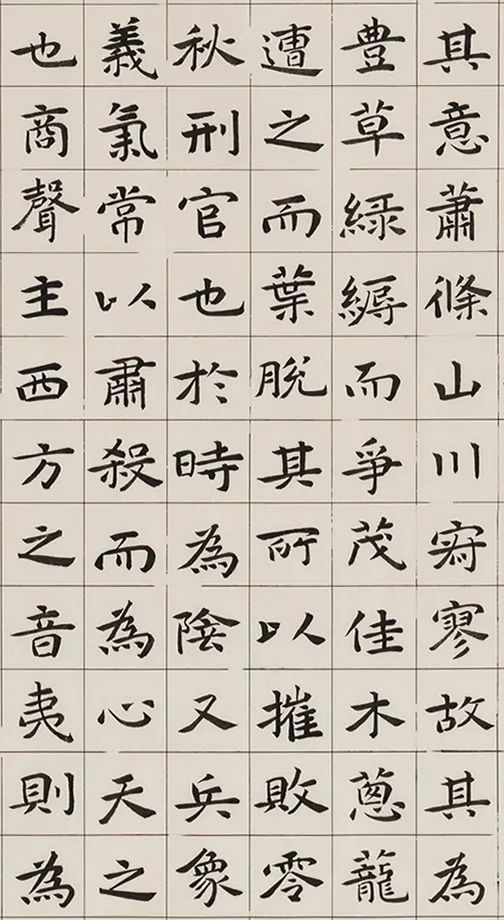 其意蕭條山川寂寥故其為
豊草綠縟而爭茂佳木蔥蘢
遭之而葉脫其所以摧敗零
秋刑官也於時為陰又兵象
義氣常以肅殺而為心天之
也商聲主西方之音夷則為